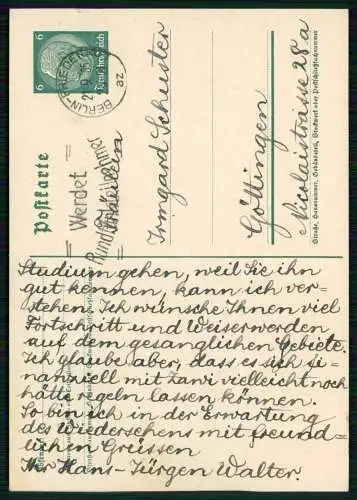 6 6
Deutsches Reich
BERLIN-FRIEDENAU
az
Postkarte
Werdet
Rundfunkteilnehmer
Fräulein
Irmgard Schuster
Göttingen
Nicolaistrasse 28a
Straße, Hausnummer, Gebäudeteil, Stockwerk oder Postschließfachnummer
Studium gehen, weil Sie ihn
gut kennen, kann ich ver-
stehen. Ich wünsche Ihnen viel
Fortschritt und Weiserwerden
auf dem gesanglichen Gebiete.
Ich glaube aber, dass es sich fi-
nanziell mit Zawi vielleicht noch
hätte regeln lassen können.
So bin ich in der Erwartung
des Wiedersehens mit freund-
lichen Grüssen
Ihr Hans-Jürgen Walter.